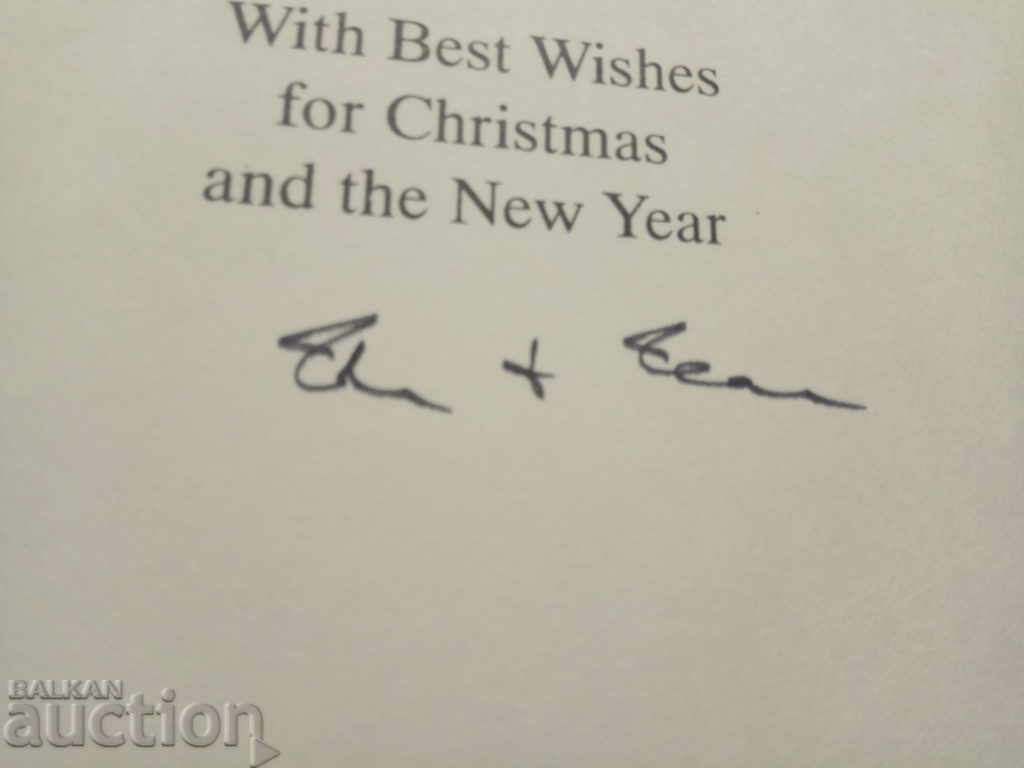 With Best Wishes
for Christmas
and the New Year
+
BALKAN
auction